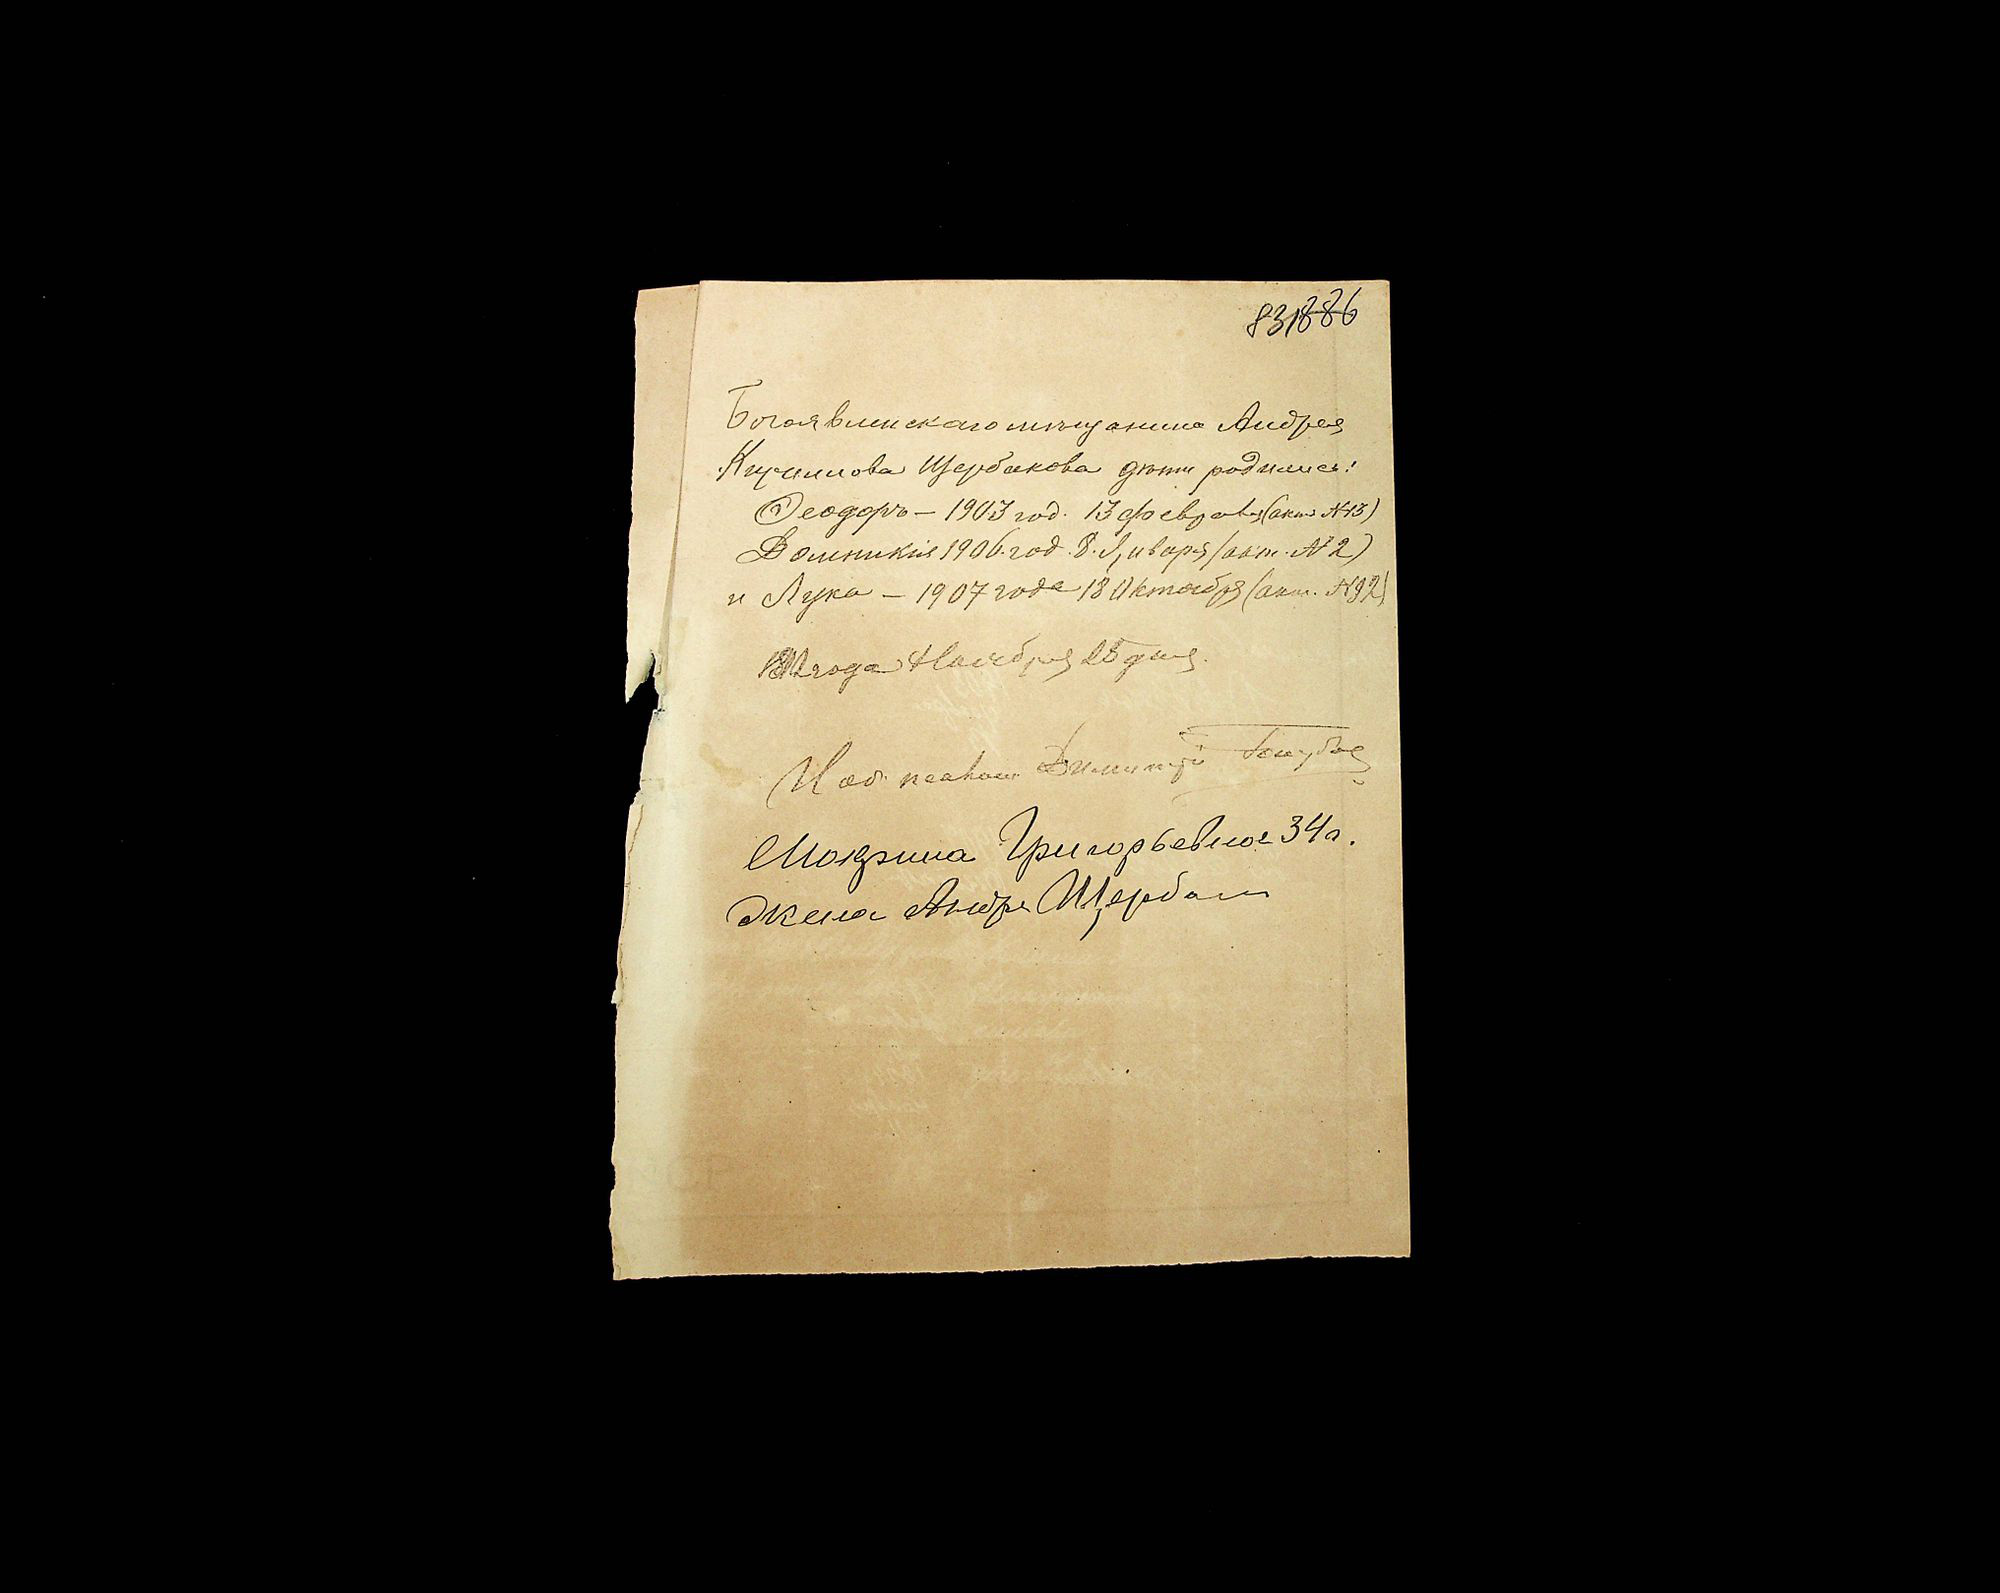 831886
Богоявленскаго мѣщанина Андрея
Кириллова Щербакова дѣти родились:
Ѳеодоръ – 1903 год. 13 февраля (акт. №13)
Домникія 1906. год. 8. Января (акт. №2)
и Лука – 1907 года 18 Октября (акт. №92)
1912 года Ноября 25 дня.
Димитрій
Мокрина Григорьевна 34 л.
Жена Андре Щербак